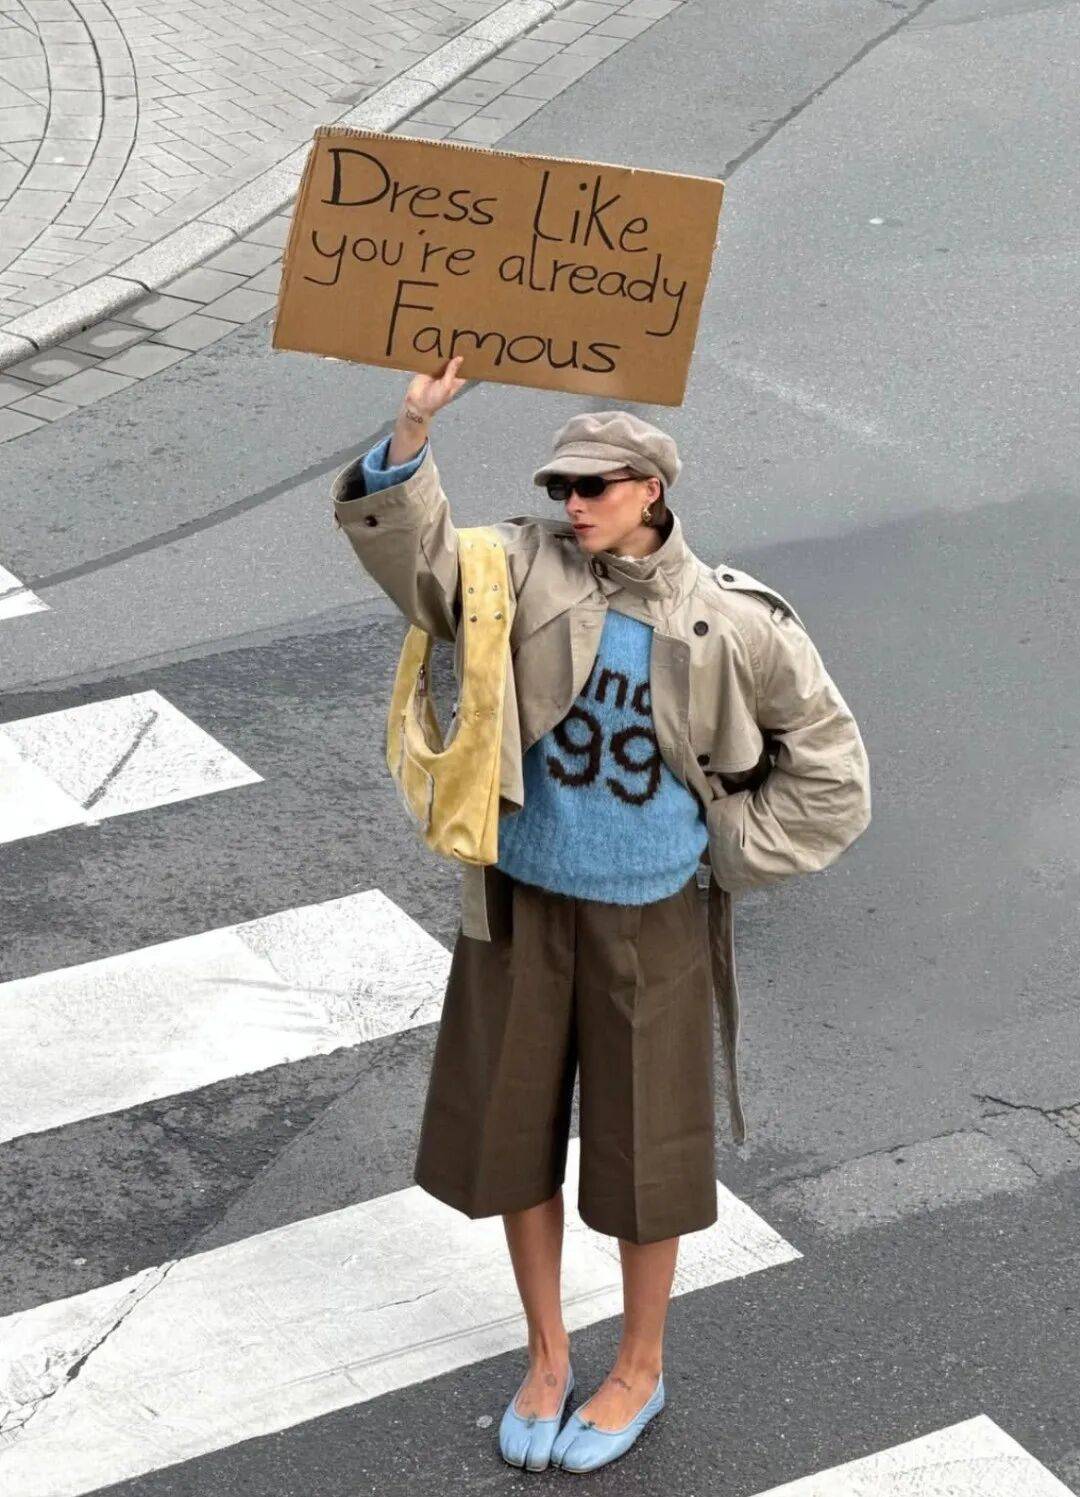 Dress Like
you're already
Famous
99